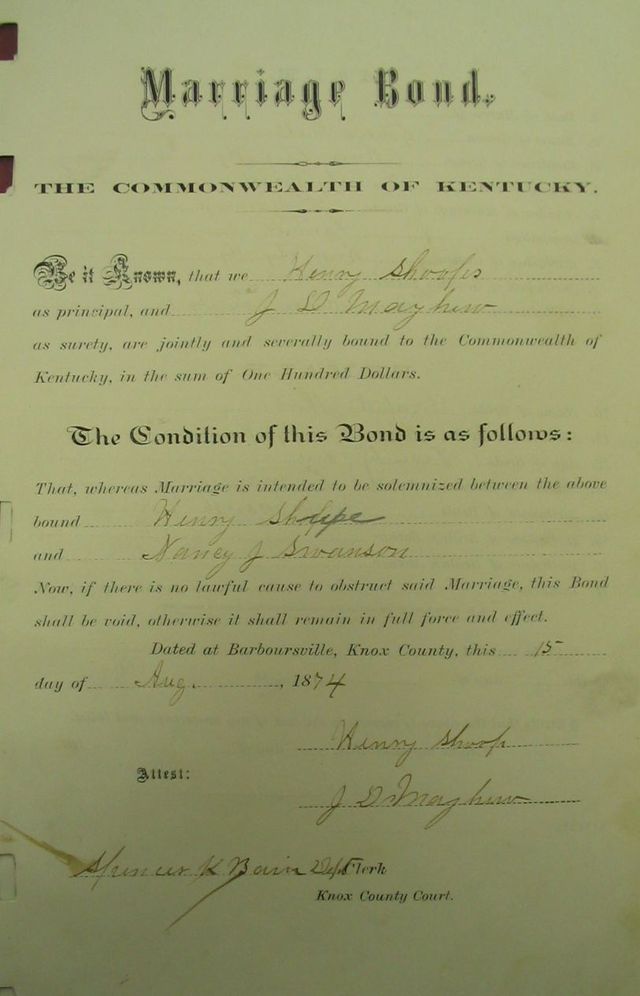 Marriage Bond.
THE COMMONWEALTH OF KENTUCKY.
Be it Known, that we Henry Shoops
as principal, and J D Mayhew
as surety, are jointly and severally bound to the Commonwealth of
Kentucky, in the sum of One Hundred Dollars.
The Condition of this Bond is as follows:
That, whereas Marriage is intended to be solemnized between the above
bound Henry
and Nancy J Swanson
Now, if there is no lawful cause to obstruct said Marriage, this Bond
shall be void, otherwise it shall remain in full force and effect.
Dated at Barboursville, Knox County, this 15
day of Aug. , 1874
Henry Shoop
Attest:
J D Mayhew
Spencer K Bain Dept Clerk
Knox County Court.